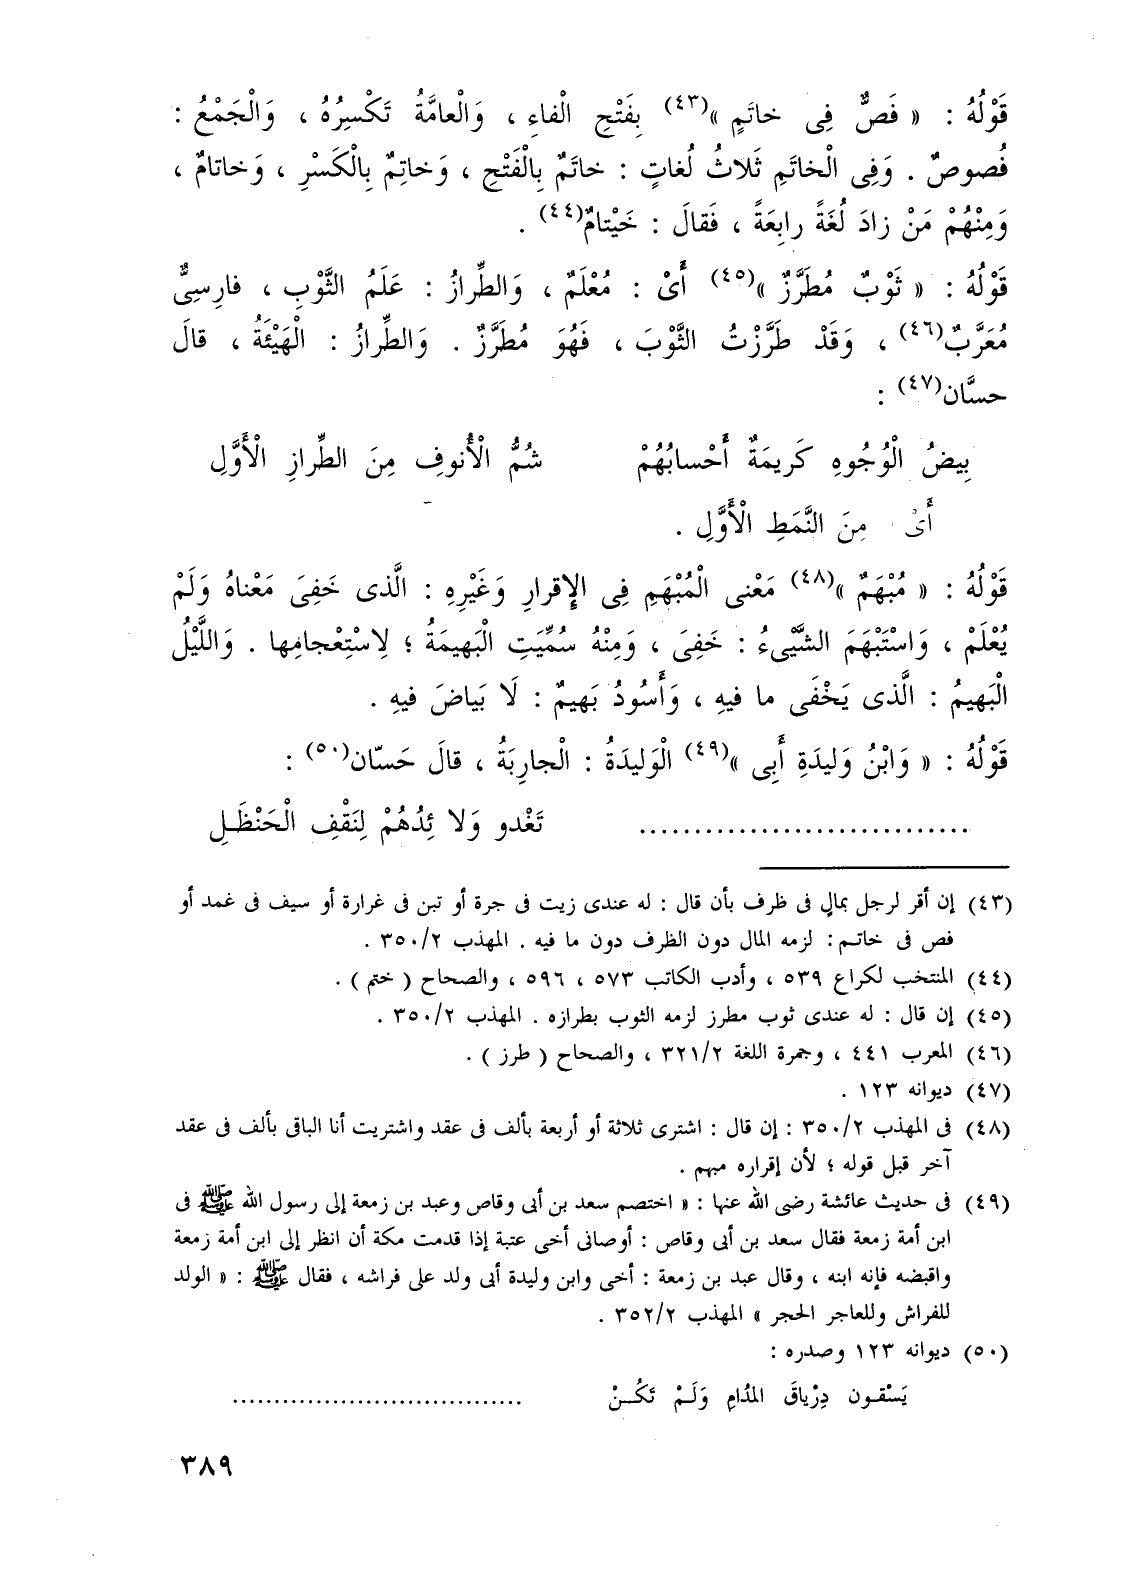 قَوْلُهُ : « فَصٌّ فِى خاتَمٍ »(٤٣) بِفَتْحِ الْفاءِ ، وَالْعامَّةُ تَكْسِرُهُ ، وَالْجَمْعُ :
فُصوصٌ . وَفِى الْخاتَمِ ثَلاثُ لُغاتٍ : خاتَمٌ بِالْفَتْحِ ، وَخاتِمٌ بِالْكَسْرِ ، وَخاتامٌ ،
وَمِنْهُمْ مَنْ زادَ لُغَةً رابِعَةً ، فَقالَ : خَيْتامٌ(٤٤) .
قَوْلُهُ : « ثَوْبٌ مُطَرَّزٌ »(٤٥) أَىْ : مُعْلَمٌ ، وَالطِّرازُ : عَلَمُ الثَّوْبِ ، فارِسِىٌّ
مُعَرَّبٌ(٤٦) ، وَقَدْ طَرَّزْتُ الثَّوْبَ ، فَهُوَ مُطَرَّزٌ . وَالطِّرازُ : الْهَيْئَةُ ، قالَ
حسَّان(٤٧) :
بِيضُ الْوُجُوهِ كَرِيمَةٌ أَحْسابُهُمْ شُمُّ الْأُنوفِ مِنَ الطِّرازِ الْأَوَّلِ
أَىْ مِنَ النَّمَطِ الْأَوَّلِ .
قَوْلُهُ : « مُبْهَمٌ »(٤٨) مَعْنى الْمُبْهَمِ فِى الإِقرارِ وَغَيْرِهِ : الَّذى خَفِىَ مَعْناهُ وَلَمْ
يُعْلَمْ ، وَاسْتَبْهَمَ الشَّيْىءُ : خَفِىَ ، وَمِنْهُ سُمِّيَتِ الْبَهيمَةُ ؛ لِاسْتِعْجامِها . وَاللَّيْلُ
الْبَهيمُ : الَّذى يَخْفَى ما فيهِ ، وَأَسُودُ بَهيمٌ : لَا بَياضَ فيهِ .
قَوْلُهُ : « وَابْنُ وَليدَةِ أَبِى »(٤٩) الْوَليدَةُ : الْجارِيَةُ ، قالَ حَسّان(٥٠) :
.............................. تَغْدو وَلا ئِدُهُمْ لِنَقْفِ الْحَنْظَـلِ
(٤٣) إن أقر لرجل بمالٍ فى ظرف بأن قال : له عندى زيت فى جرة أو تبن فى غرارة أو سيف فى غمد أو
فص فى خاتـم : لزمه المال دون الظرف دون ما فيه . المهذب ٣٥٠/٢ .
(٤٤) المنتخب لكراع ٥٣٩ ، وأدب الكاتب ٥٧٣ ، ٥٩٦ ، والصحاح ( ختم ) .
(٤٥) إن قال : له عندى ثوب مطرز لزمه الثوب بطرازه . المهذب ٣٥٠/٢ .
(٤٦) المعرب ٤٤١ ، وجمرة اللغة ٣٢١/٢ ، والصحاح ( طرز ) .
(٤٧) ديوانه ١٢٣ .
(٤٨) فى المهذب ٣٥٠/٢ : إن قال : اشترى ثلاثة أو أربعة بألف فى عقد واشتريت أنا الباقى بألف فى عقد
آخر قبل قوله ؛ لأن إقراره مبهم .
(٤٩) فى حديث عائشة رضى الله عنها : « اختصم سعد بن أبى وقاص وعبد بن زمعة إلى رسول الله ﷺ فى
ابن أمة زمعة فقال سعد بن أبى وقاص : أوصانى أخى عتبة إذا قدمت مكة أن انظر إلى ابن أمة زمعة
واقبضه فإنه ابنه ، وقال عبد بن زمعة : أخى وابن وليدة أبى ولد على فراشه ، فقال ﷺ : « الولد
للفراش وللعاجر الحجر » المهذب ٣٥٢/٢ .
(٥٠) ديوانه ١٢٣ وصدره :
يَسْقـون دِرْياقَ المدُامِ وَلَـمْ تَكُــنْ ..................................
٣٨٩